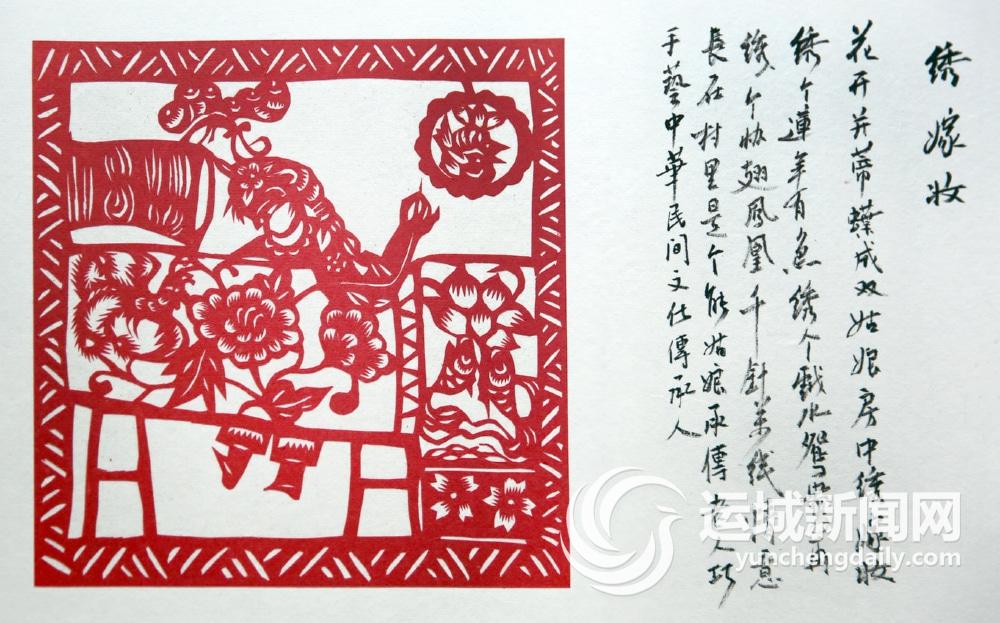 绣嫁妆
花开并蒂蝶成双姑娘房中绣嫁妆
绣个連年有魚绣个戲水鸳鸯再
绣个协翅凤凰千針萬线
長在村里是个能姑娘承傳老人巧
手藝中華民间文化傳承人
运城新闻网
yunchengdaily.com